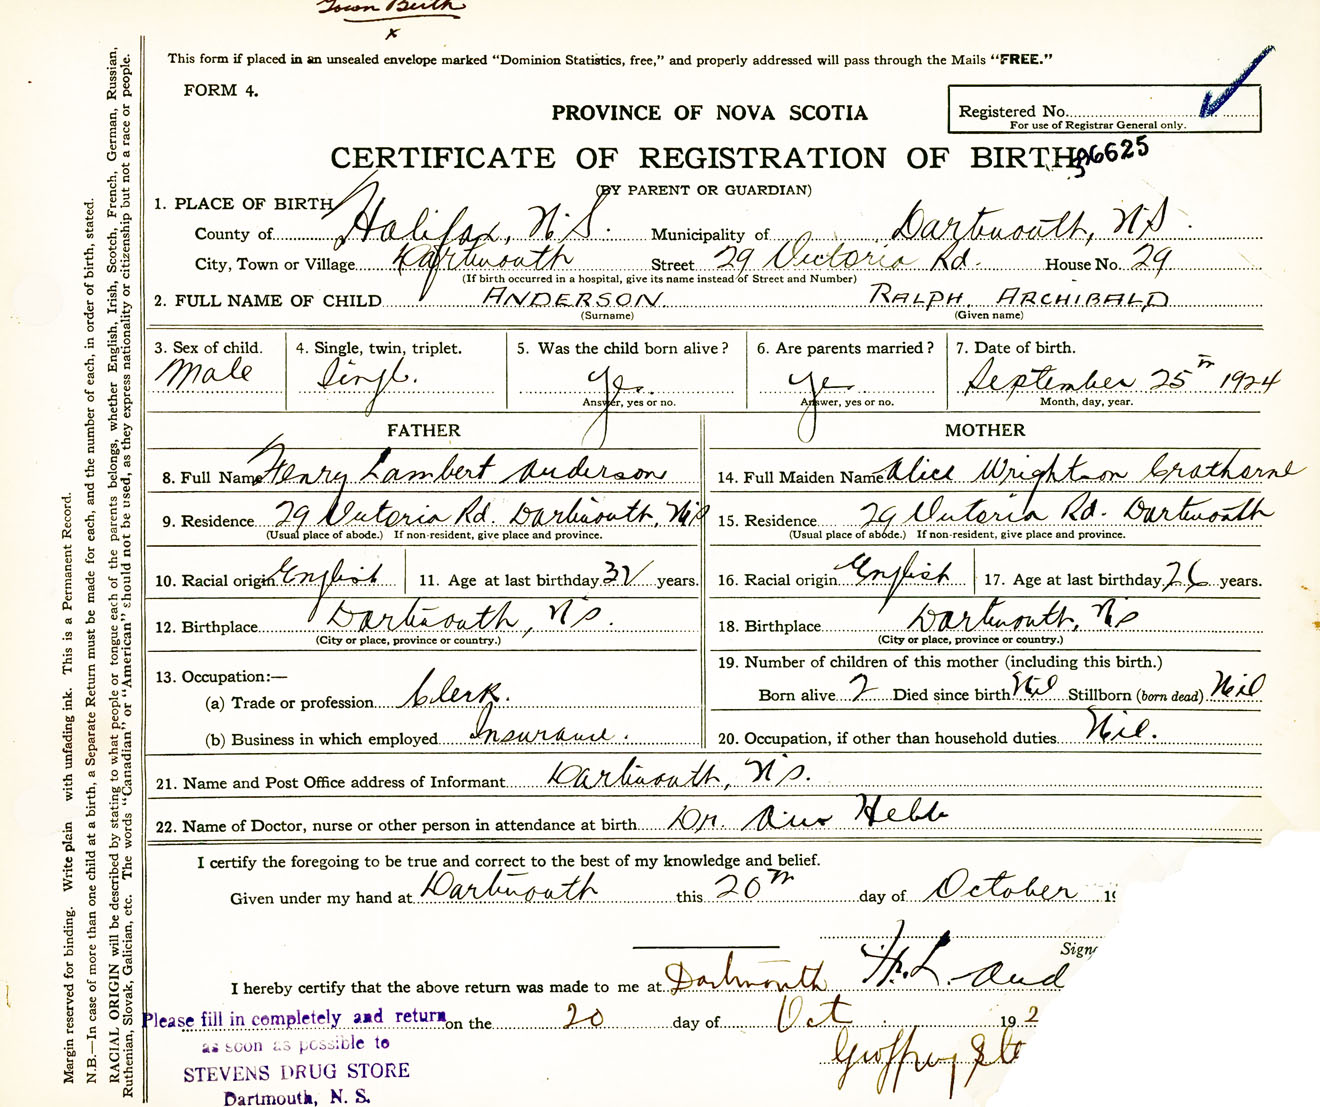 Town Birth
x
This form if placed in an unsealed envelope marked "Dominion Statistics, free," and properly addressed will pass through the Mails "FREE."
FORM 4.
PROVINCE OF NOVA SCOTIA
Registered No.
For use of Registrar General only.
CERTIFICATE OF REGISTRATION OF BIRTH
36625
(BY PARENT OR GUARDIAN)
1. PLACE OF BIRTH
County of Halifax, N.S. Municipality of Dartmouth, N.S.
City, Town or Village Dartmouth Street 29 Victoria Rd. House No. 29
(If birth occurred in a hospital, give its name instead of Street and Number)
2. FULL NAME OF CHILD ANDERSON RALPH ARCHIBALD
(Surname) (Given name)
3. Sex of child. 4. Single, twin, triplet. 5. Was the child born alive? 6. Are parents married? 7. Date of birth.
Male Single. Yes. Yes September 25th 1924
Answer, yes or no. Answer, yes or no. Month, day, year.
FATHER MOTHER
8. Full Name Henry Lambert Anderson 14. Full Maiden Name Alice Wrightson Crathorne
9. Residence 29 Victoria Rd. Dartmouth, N.S 15. Residence 29 Victoria Rd. Dartmouth
(Usual place of abode.) If non-resident, give place and province. (Usual place of abode.) If non-resident, give place and province.
10. Racial origin English 11. Age at last birthday 32 years. 16. Racial origin English 17. Age at last birthday 26 years.
12. Birthplace Dartmouth, N.S. 18. Birthplace Dartmouth, N.S
(City or place, province or country.) (City or place, province or country.)
13. Occupation:— 19. Number of children of this mother (including this birth.)
(a) Trade or profession Clerk. Born alive 2 Died since birth Nil Stillborn (born dead) Nil
(b) Business in which employed Insurance. 20. Occupation, if other than household duties Nil.
21. Name and Post Office address of Informant Dartmouth, N.S.
22. Name of Doctor, nurse or other person in attendance at birth Dr. Hebb
I certify the foregoing to be true and correct to the best of my knowledge and belief.
Given under my hand at Dartmouth this 20th day of October 19
Sign
H.L. And
I hereby certify that the above return was made to me at Dartmouth
on the 20 day of Oct 192
Geoffrey Ste
Please fill in completely and return
as soon as possible to
STEVENS DRUG STORE
Dartmouth, N. S.
Margin reserved for binding. Write plain with unfading ink. This is a Permanent Record.
N.B.—In case of more than one child at a birth, a Separate Return must be made for each, and the number of each, in order of birth, stated.
RACIAL ORIGIN will be described by stating to what people or tongue each of the parents belongs, whether English, Irish, Scotch, French, German, Russian,
Ruthenian, Slovak, Galician, etc. The words "Canadian" or "American" should not be used, as they express nationality or citizenship but not a race or people.